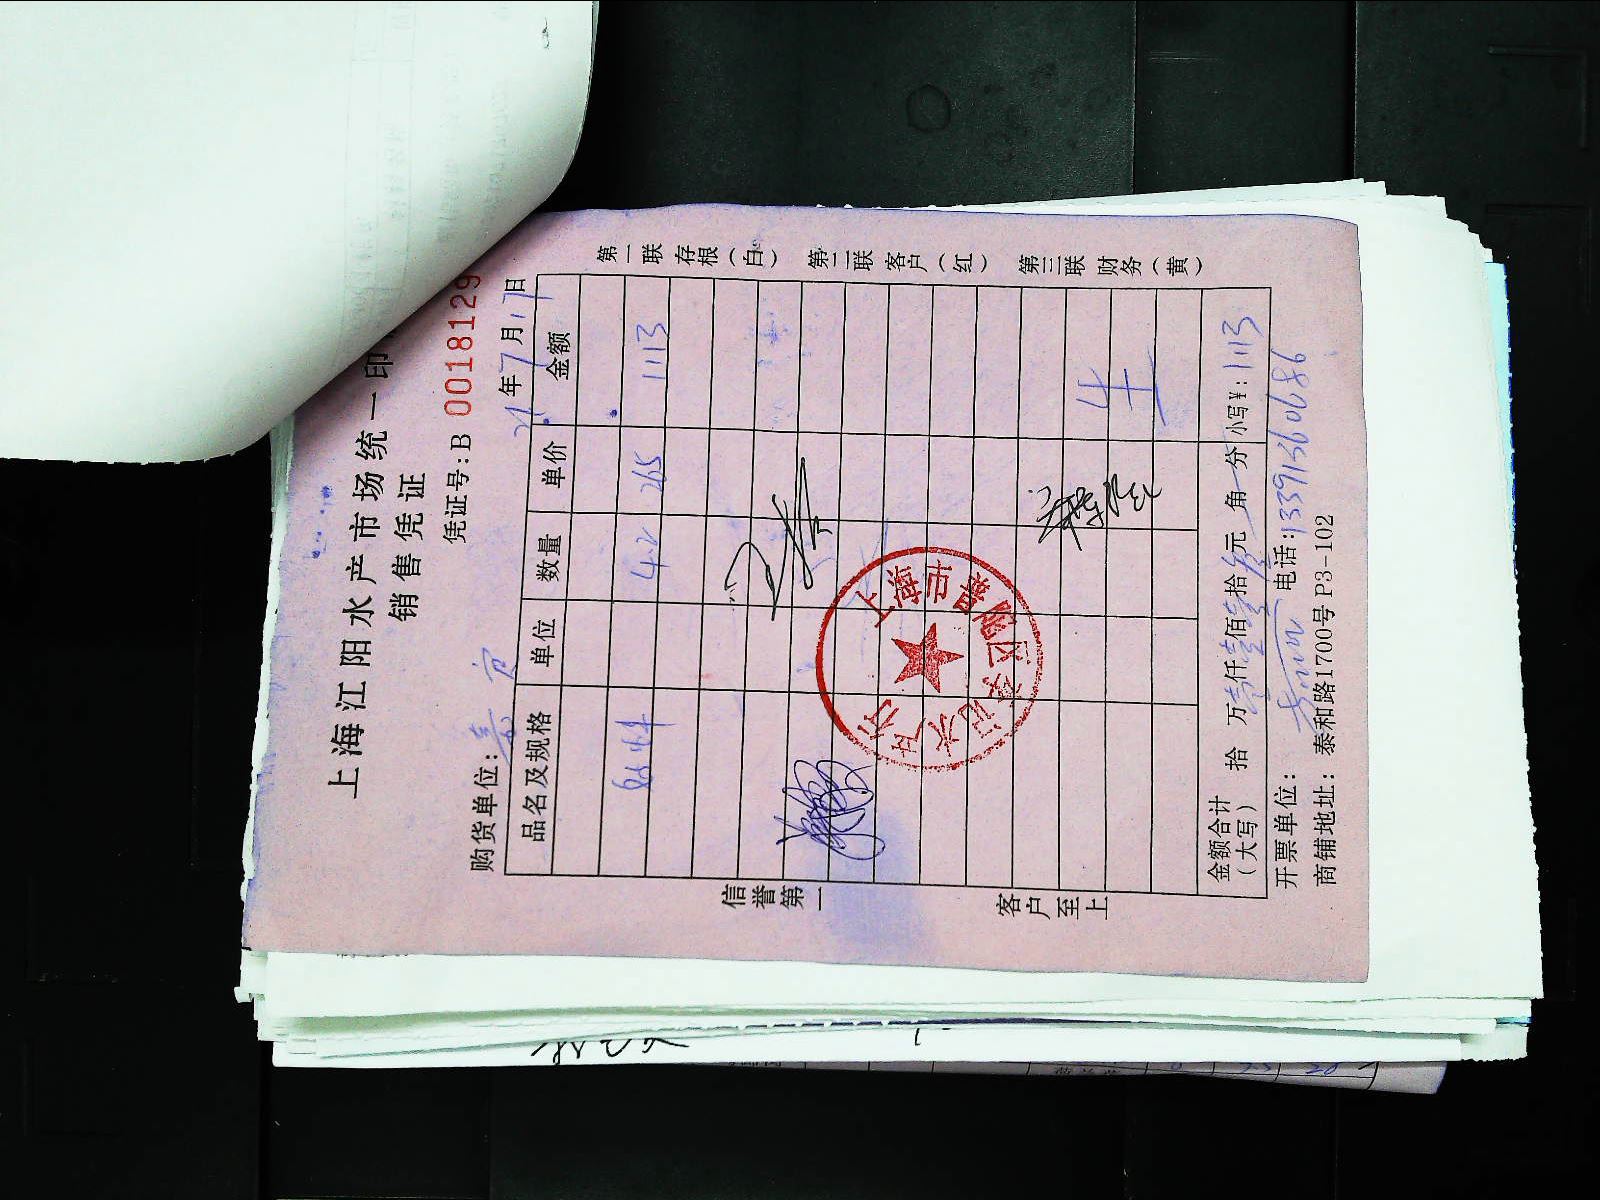 上海江阳水产市场统一印
销售凭证
凭证号:B 0018129
购货单位:
21年7月17日
品名及规格 单位 数量 单价 金额
42 265 1113
金额合计(大写) 拾 万壹仟壹佰壹拾叁元 角 分 小写¥:1113
开票单位: 电话:13391360686
商铺地址: 泰和路1700号 P3-102
第一联 存根(白) 第二联 客户(红) 第三联 财务(黄)
信誉第一
客户至上